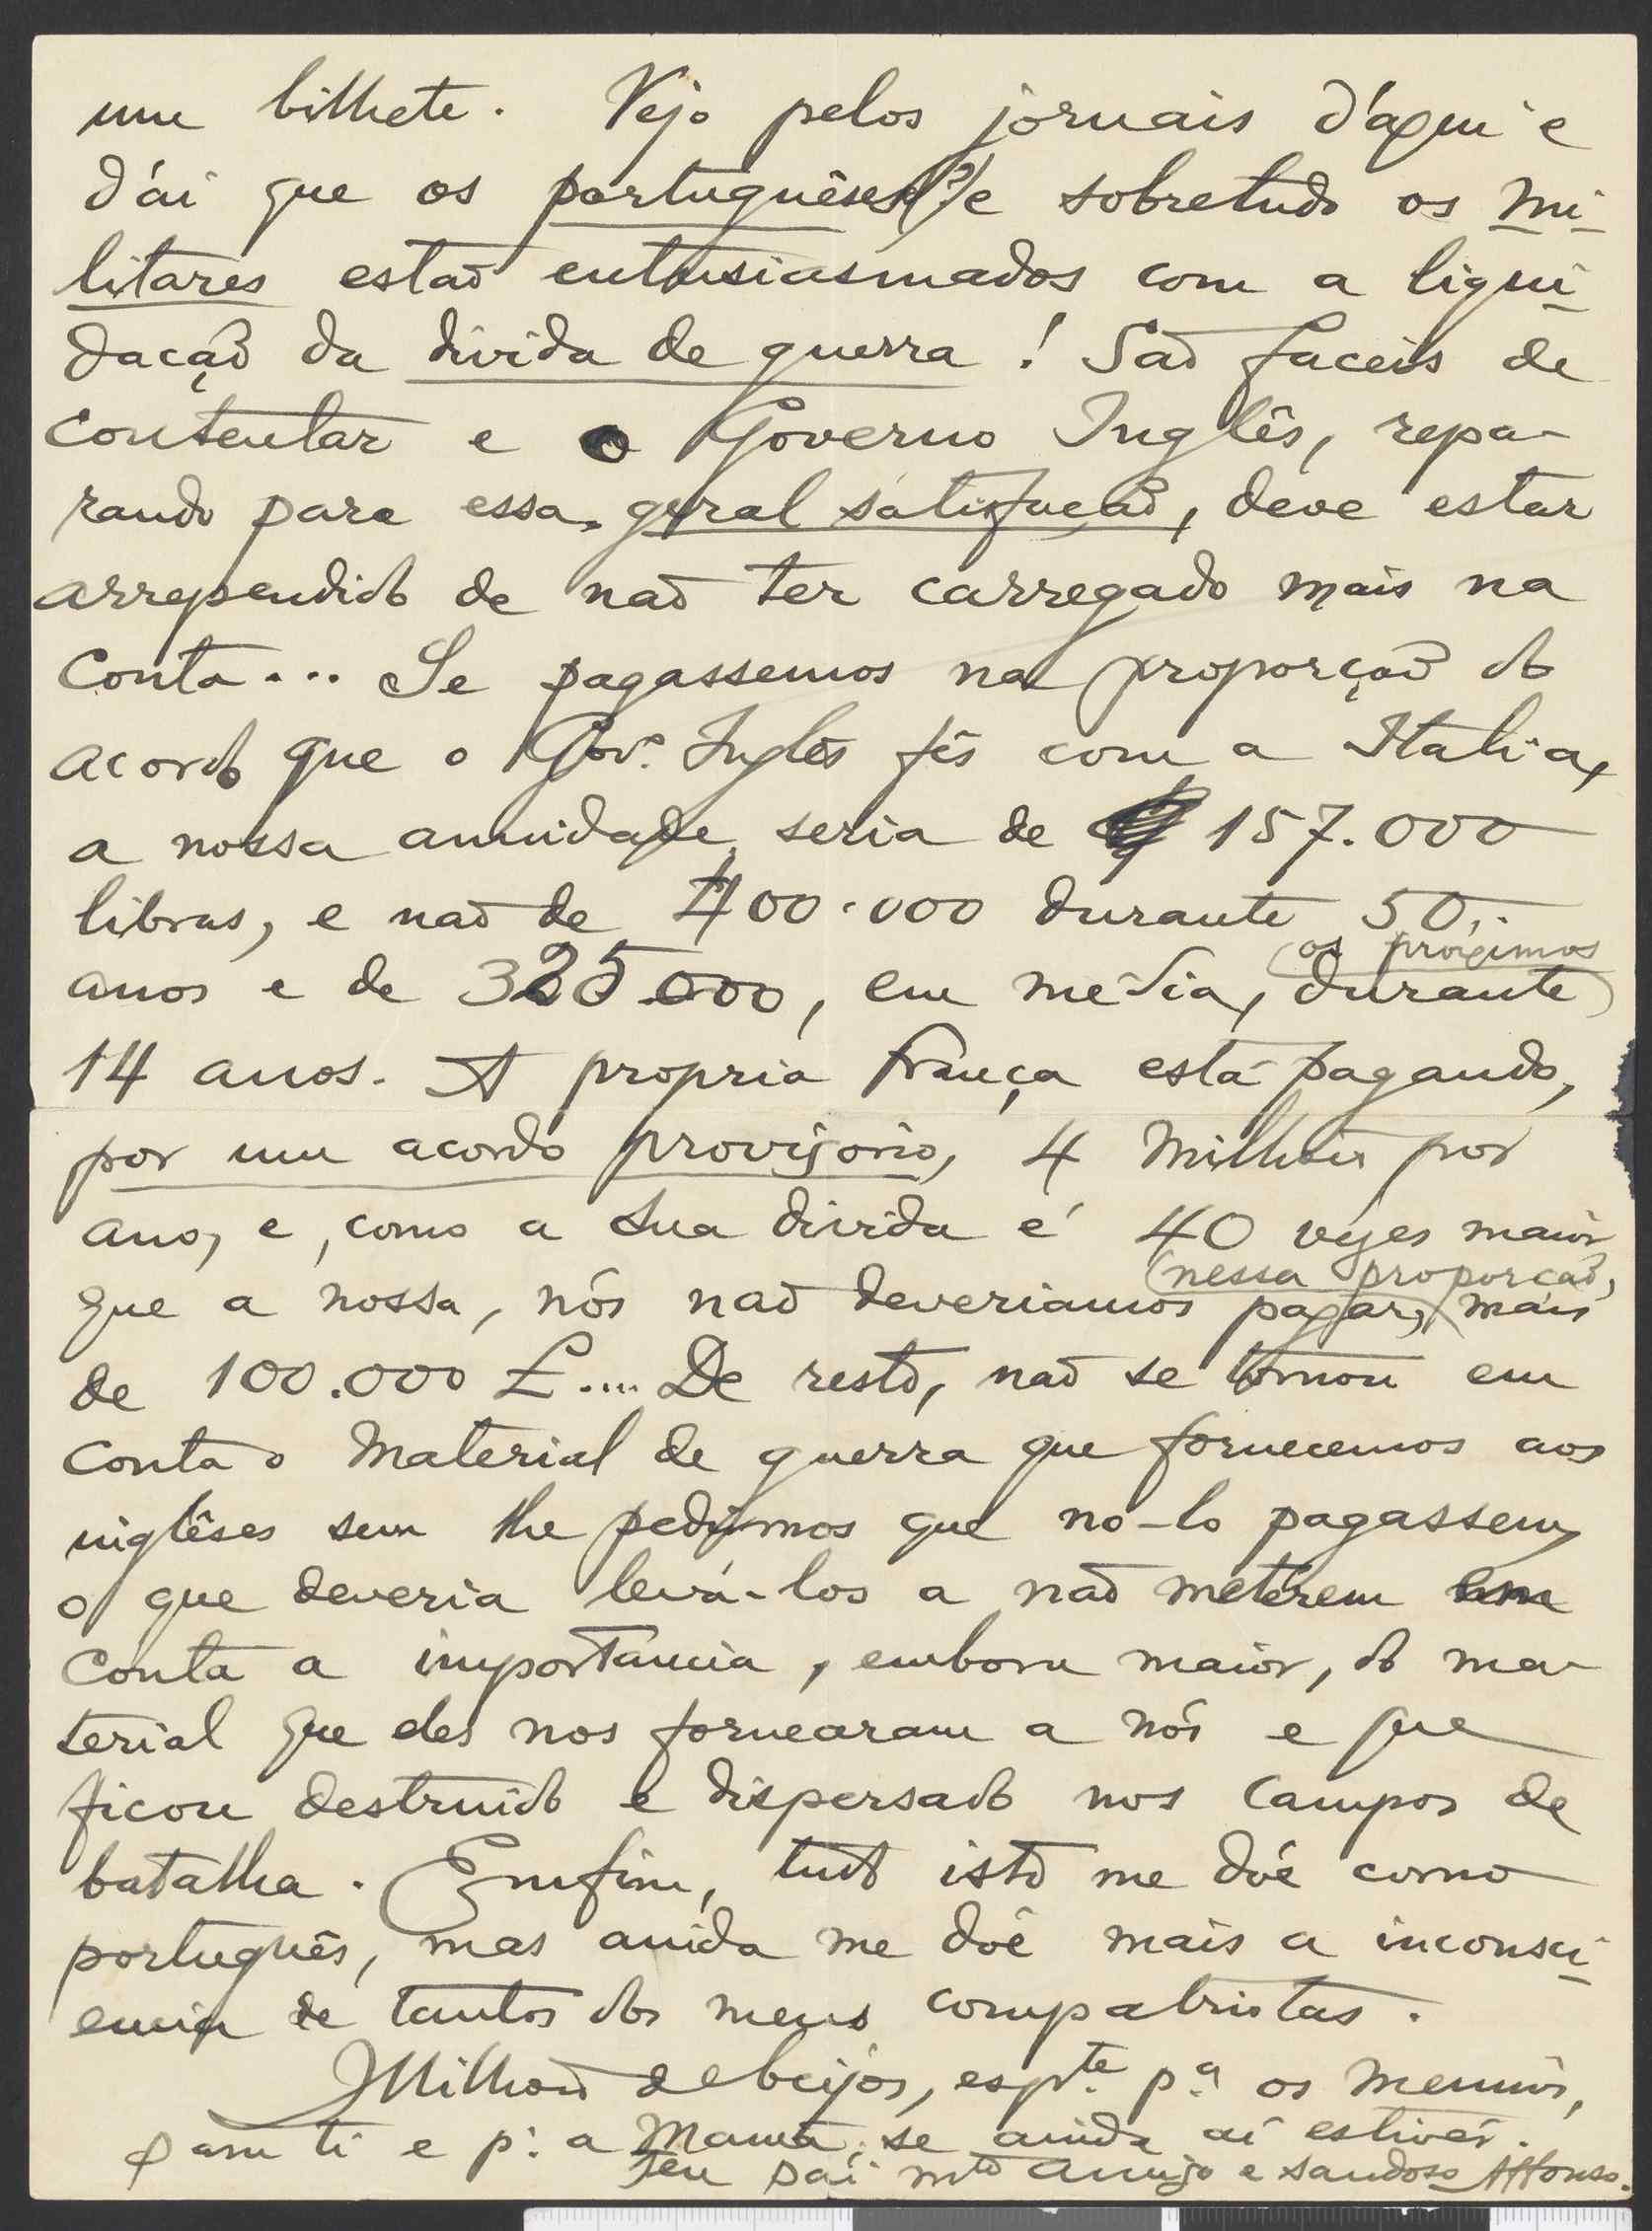 um bilhete. Vejo pelos jornais d'áqui e
d'ái que os portuguêses(?) e sobretudo os mi-
litares estaõ entusiasmados com a liqui-
dacaçõ da divida de guerra! Saõ faceis de
contentar e o Governo Inglês, repa-
rando para essa geral satisfaçaõ, deve estar
arrependido de naõ ter carregado mais na
conta... Se pagassemos na proporçaõ do
acordo que o Gov.º Inglês fês com a Italia,
a nossa anuidade seria de 157.000
libras, e naõ de 400.000 durante 50
anos e de 325.000, em média, durante
(os proximos
14 anos. A propria França está pagando,
por um acordo provisorio, 4 Milhões por
ano, e, como a sua divida é 40 vezes maior
que a nossa, nós naõ deveriamos pagar, mais
(nessa proporcaõ,
de 100.000 £.... De resto, naõ se tomou em
conta o Material de guerra que fornecemos aos
inglêses sem lhe pedirmos que no-lo pagassem,
o que deveria levá-los a naõ meterem em
conta a importancia, embora maior, do ma-
terial que eles nos forneceram a nós e que
ficou destruido e dispersado nos campos de
batalha. Emfim, tudo isto me dóe como
português, mas ainda me dóe mais a inconsci-
encia de tantos dos meus compatriotas.
Milhões de beijos, esp.te p.ª os meninos,
para ti e p.ª a Mamã, se ainda aí estivér.
Teu pai m.to amigo e saudoso Affonso.